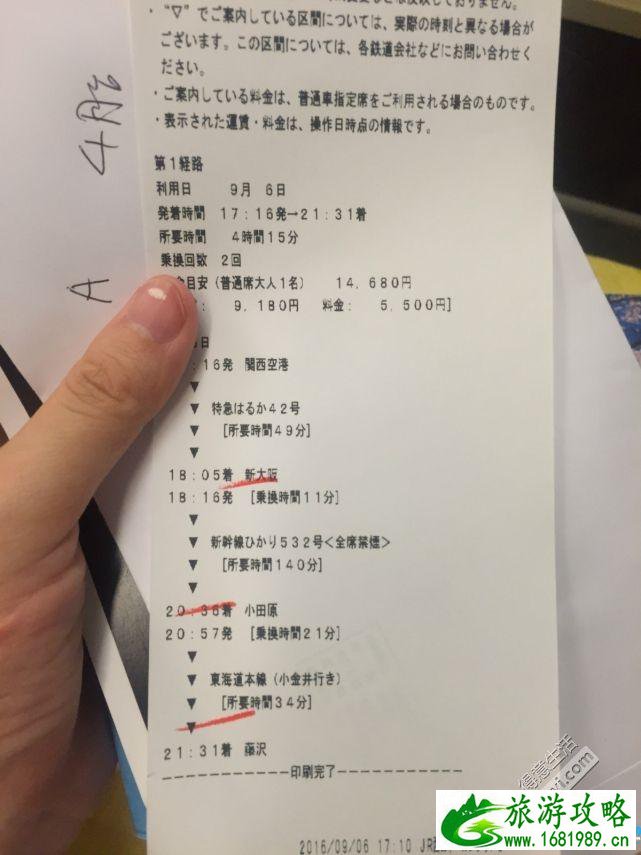 ・"▽"でご案内している区間については、実際の時刻と異なる場合が
ございます。この区間については、各鉄道会社などにお問い合わせく
ださい。
・ご案内している料金は、普通車指定席をご利用される場合のものです。
・表示された運賃・料金は、操作日時点の情報です。
4月台
A
第1経路
利用日　9月　6日
発着時間　17:16発→21:31着
所要時間　4時間15分
乗換回数　2回
目安(普通席大人1名)　14,680円
9,180円　料金:　5,500円]
日
:16発　関西空港
▼
▼　特急はるか42号
▼　[所要時間49分]
▼
18:05着　新大阪
18:16発　[乗換時間11分]
▼
▼　新幹線ひかり532号<全席禁煙>
▼　[所要時間140分]
▼
20:36着　小田原
20:57発　[乗換時間21分]
▼
▼　東海道本線(小金井行き)
▼　[所要時間34分]
▼
21:31着　藤沢
印刷完了
2016/09/06 17:10 JR
得意生活
旅游攻略
www.1681989.cn